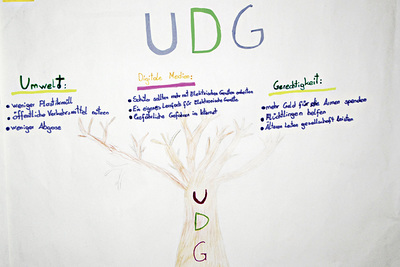 UDG
Umwelt:
• weniger Plastikmüll
• öffentliche Verkehrsmittel nutzen
• weniger Abgase
Digitale Medien:
• Schüler sollten mehr mit Elektrischen Geräten arbeiten
• Ein eigenes Lernfach für Elektronische Geräte
• Gefährliche Gefahren im Internet
Gerechtigkeit:
• mehr Geld für die Armen spenden
• Flüchtlingen helfen
• Älteren Leuten gesellschaft leisten
U
D
G